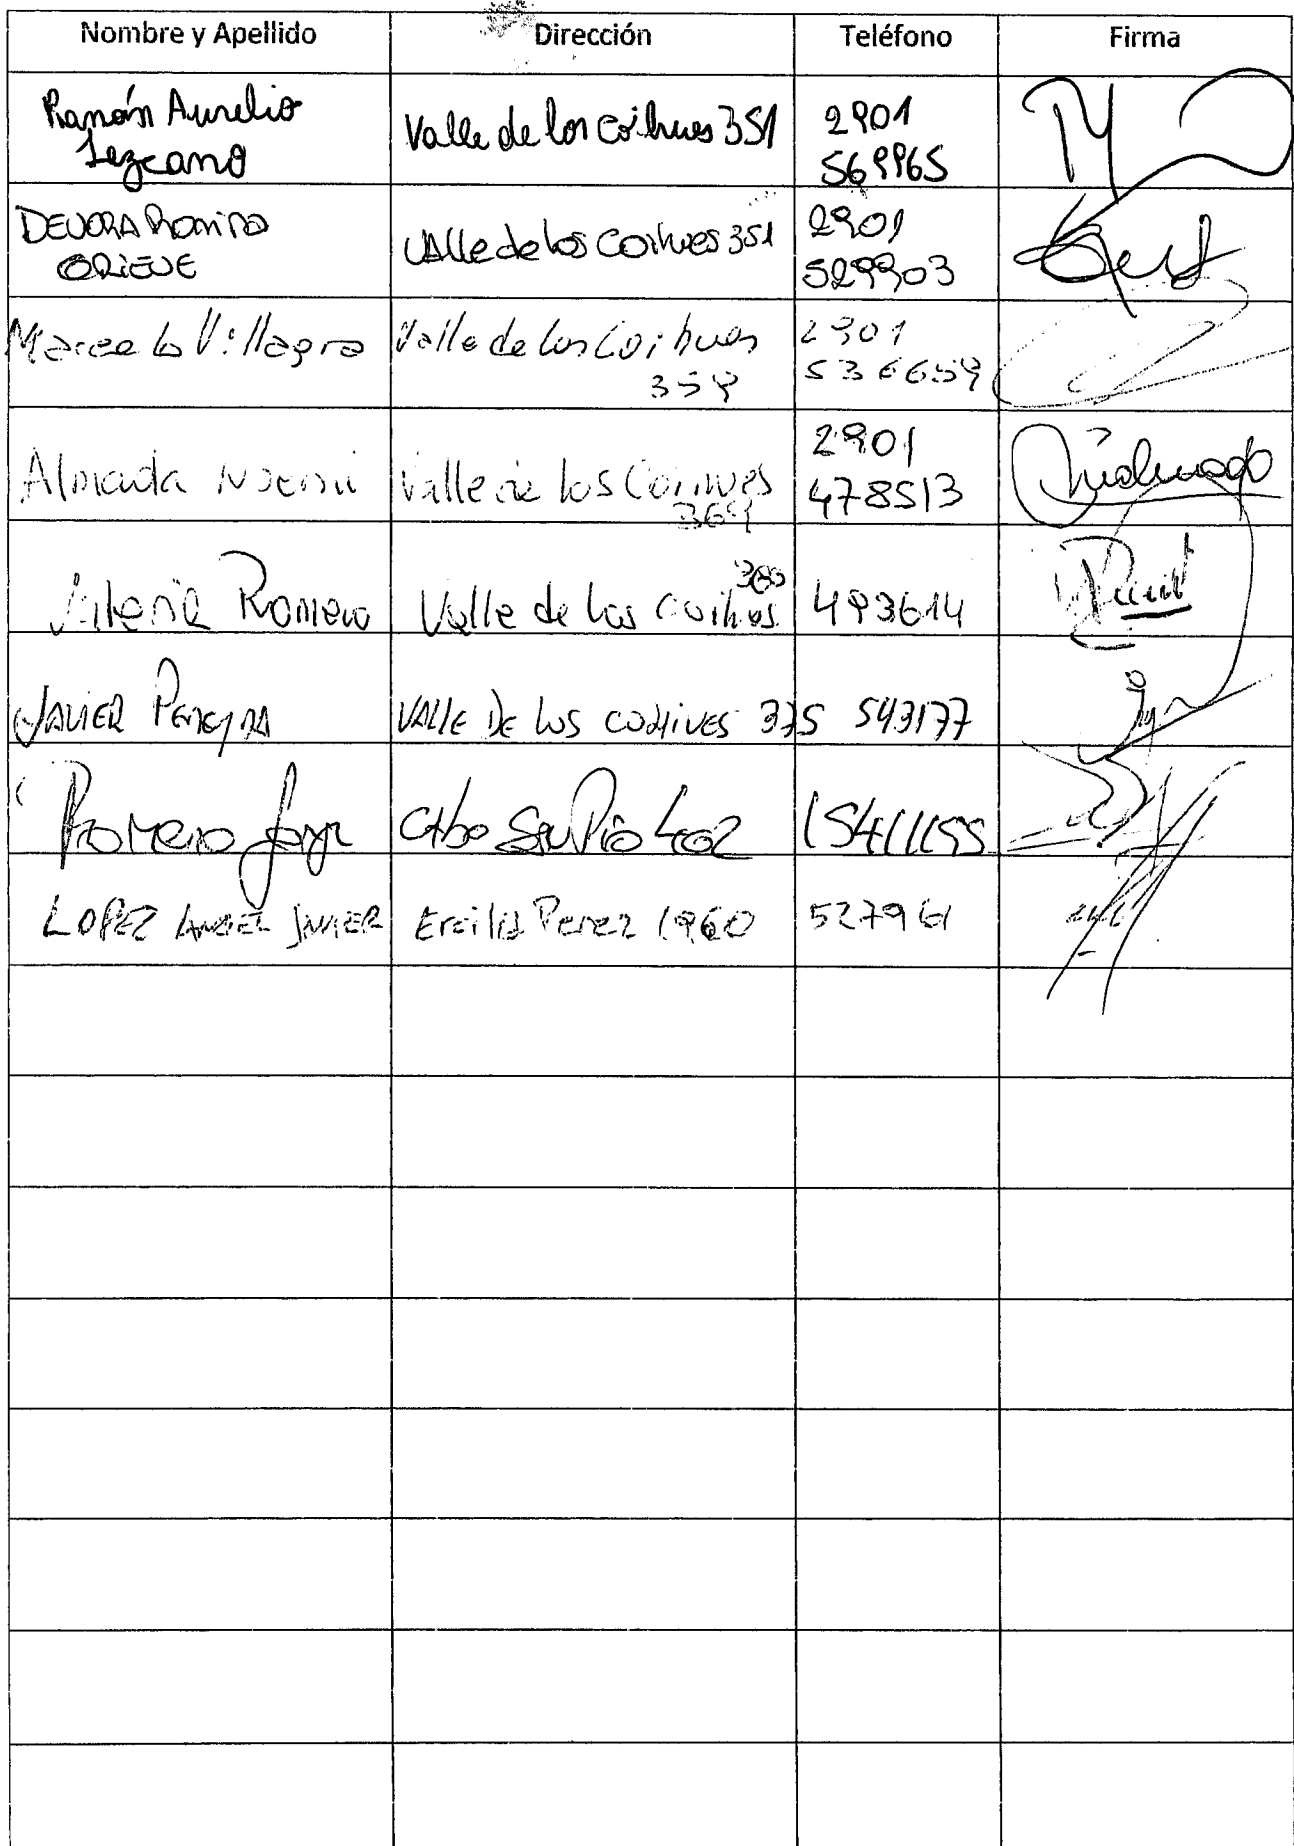 Nombre y Apellido Dirección Teléfono Firma
Ramón Aurelio
Lezcano
Valle de los Coihues 351
2901
569965
DEVORA Romina
ORIEVE
Valle de los Coihues 351
2901
529903
Marcelo Villagra
Valle de los Coihues
359
2901
536659
Almada Noemi
Valle de los Coihues
369
2901
478513
Romero
Valle de los Coihues
493614
JAVIER PEREYRA VALLE DE LOS COIHUES 375 543177
Romero Jorge Cabo San Pio 402
LOPEZ ANGEL JAVIER Ercilia Perez 1960 527961